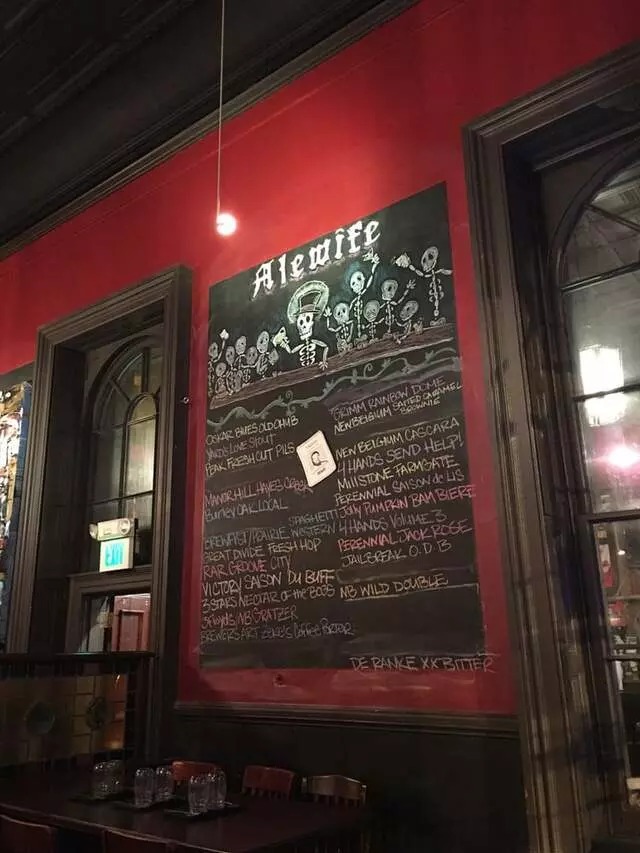 Alewife
OSKAR BLUES OLD CHUB
YARDS LOVE STOUT
PEAK FRESH CUT PILS
MANOR HILL HAYES CREEK
BURLEY OAK LOCAL
EVIL TWIN/PRAIRIE SPAGHETTI WESTERN
GREAT DIVIDE FRESH HOP
RAR GROOVE CITY
VICTORY SAISON DU BUFF
3 STARS NECTAR OF THE BOGS
3 FLOYDS NB GRATZER
BREWER'S ART ZEKE'S COFFEE PORTER
GRIMM RAINBOW DOME
NEW BELGIUM SALTED CARAMEL
BROWNIE
NEW BELGIUM CASCARA
4 HANDS SEND HELP!
MILLSTONE FARMGATE
PERENNIAL SAISON de LIS
Jolly PUMPKIN BAM BIERE
4 HANDS VOLUME 3
PERENNIAL JACK ROSE
JAILBREAK O.D.B
NB WILD DOUBLE
DE RANKE XX BITTER
EXIT